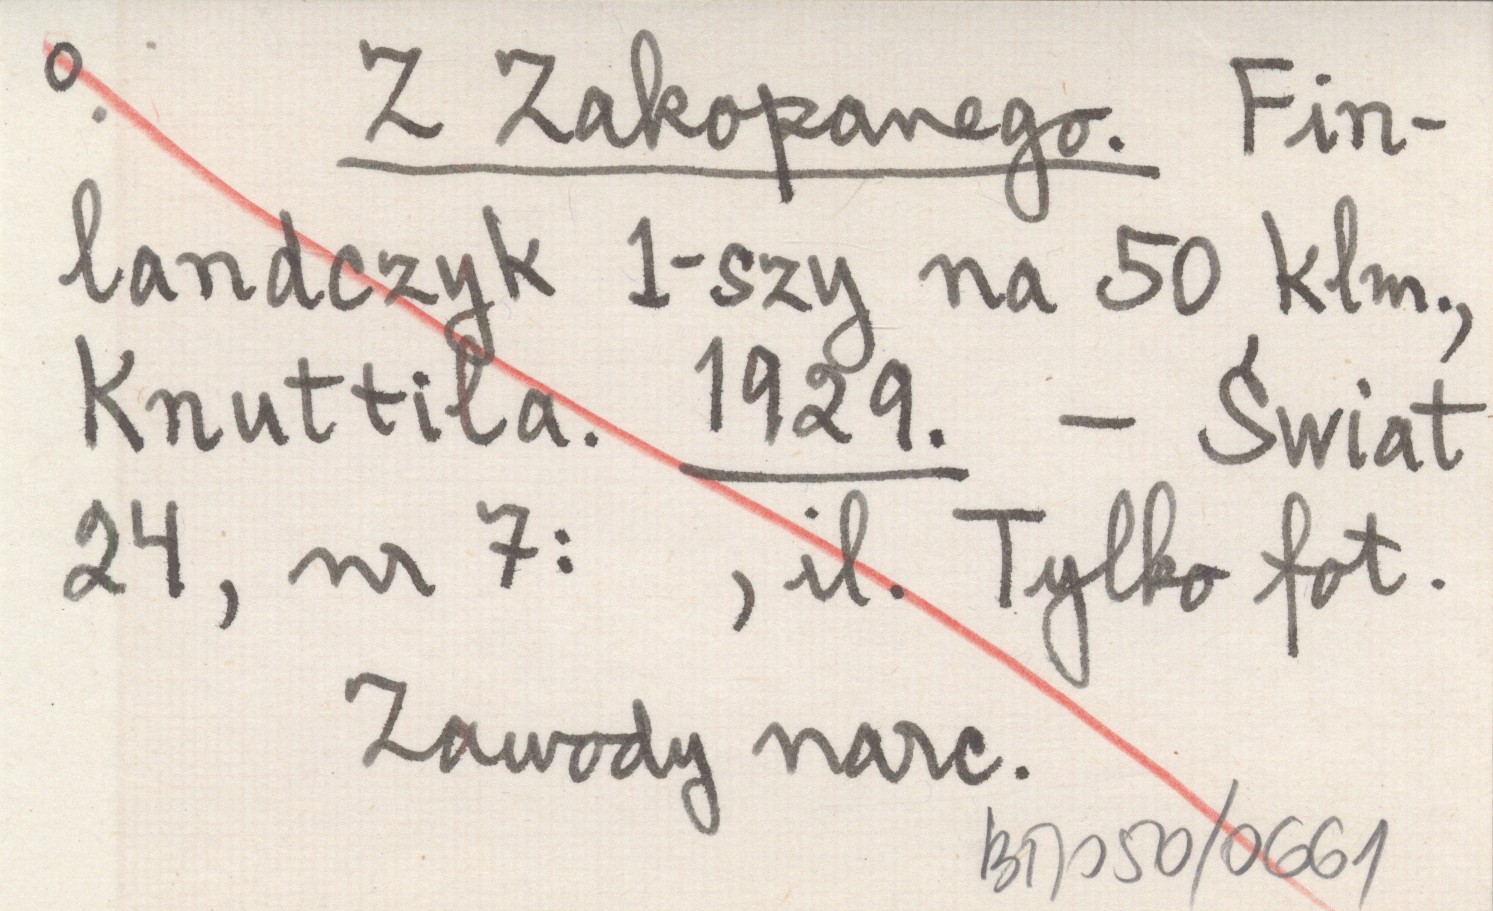 o Z Zakopanego. Fin-
landczyk 1-szy na 50 klm.,
Knuttila. 1929. – Świat
24, nr 7: , il. Tylko fot.
Zawody narc.
/0661